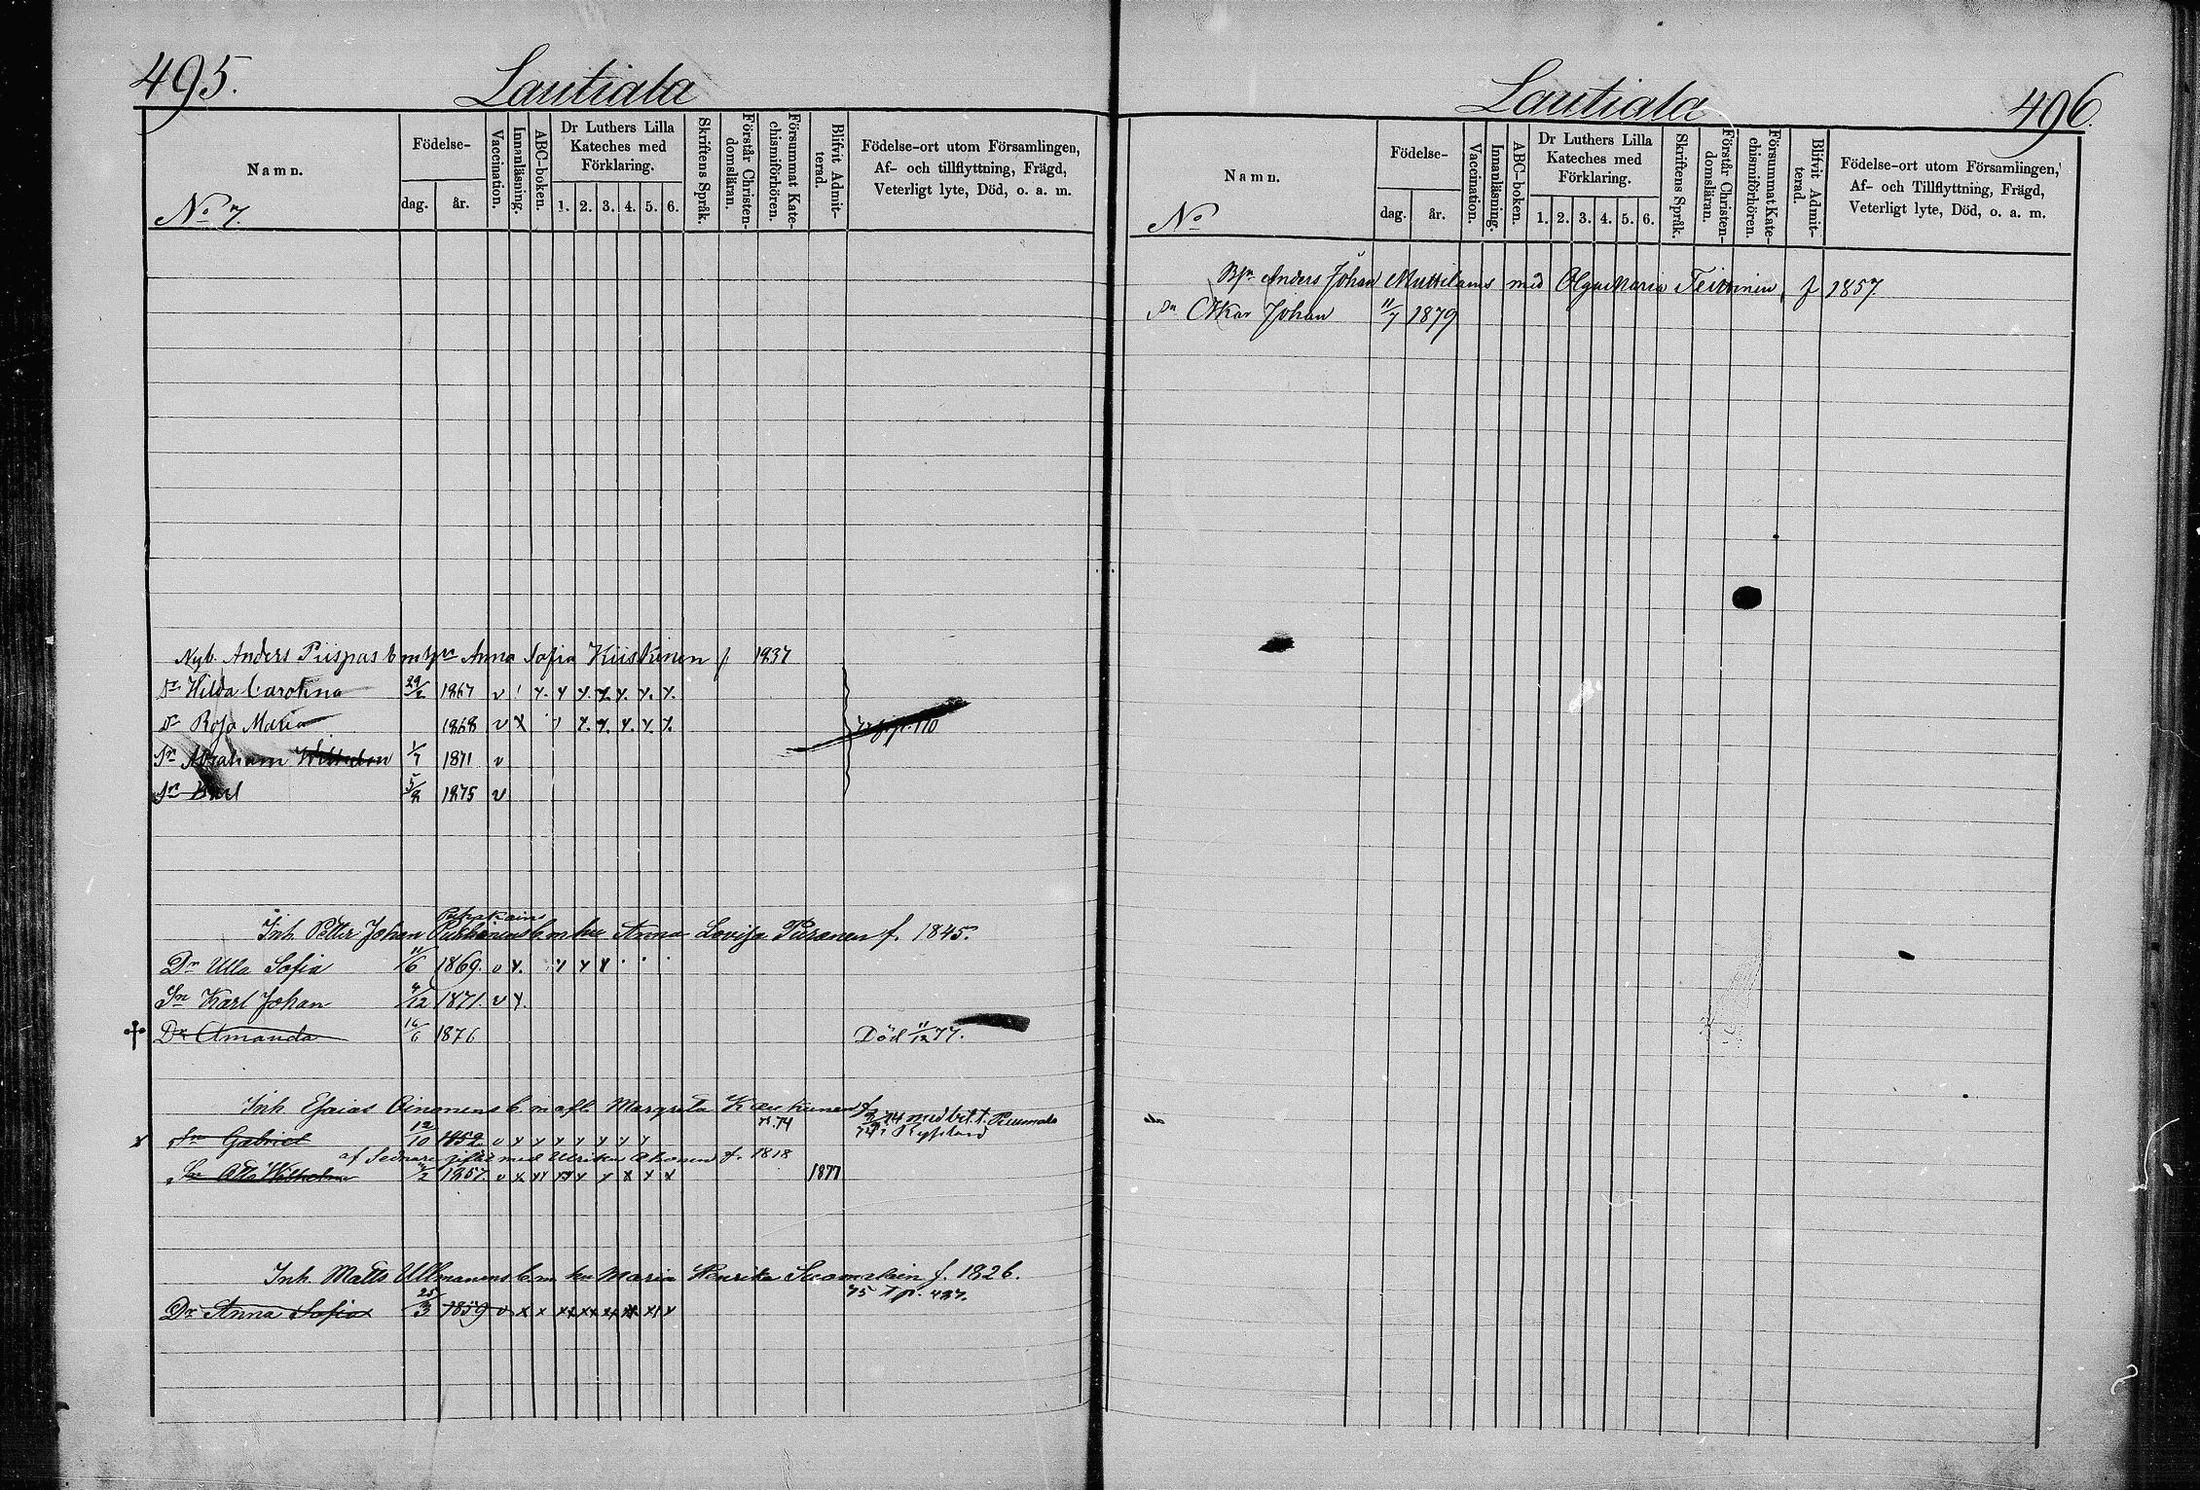 495.
Lautiala
Namn.
No 7.
Födelse-
dag.
år.
Vaccination.
Innanläsning.
ABC-boken.
Dr Luthers Lilla
Kateches med
Förklaring.
1. 2. 3. 4. 5. 6.
Skriftens Språk.
Förstår Christen-
domsläran.
Försummat Kate-
chismiförhören.
Blifvit Admit-
terad.
Födelse-ort utom Församlingen,
Af- och tillflyttning, Frägd,
Veterligt lyte, Död, o. a. m.
Nyb. Anders Piispas b m hu Anna Sofia Kiiskinen f 1837
Dr Hilda Carolina 29/2 1867 v
Dr Rosa Maria 1868 v x
Sn Abraham Wilhelm 1/7 1871 v
Sn Karl 5/8 1875 v
Inh. Petter Johan b m hu Anna Lovisa Puranen f. 1845.
Dr Ulla Sofia 11/6 1869. v
Sn Karl Johan 4/12 1871. v
Dr Amanda 16/6 1876 Död 11/12 77.
Inh Esaias Oinonens b m afl. Margreta Kaukunen f
Sn Gabriel 12/10 1852 v 74 med bet. t.
af sednare giftet med Ulrika Ahonen f. 1818
Sn Otto Wilhelm 1857. v 1877
Inh. Matts Ullmanens b m hu Maria Henrika Suomalain f. 1826.
75 T p. 427.
Dr Anna Sofia 25/3 1859 v x x
Lautiala
496.
Namn.
No
Födelse-
dag.
år.
Vaccination.
Innanläsning.
ABC-boken.
Dr Luthers Lilla
Kateches med
Förklaring.
1. 2. 3. 4. 5. 6.
Skriftens Språk.
Förstår Christen-
domsläran.
Försummat Kate-
chismiförhören.
Blifvit Admit-
terad.
Födelse-ort utom Församlingen,
Af- och Tillflyttning, Frägd,
Veterligt lyte, Död, o. a. m.
Anders Johan Muttilains med Olga Maria Teittinen, f 1857
Sn Oskar Johan 11/7 1879